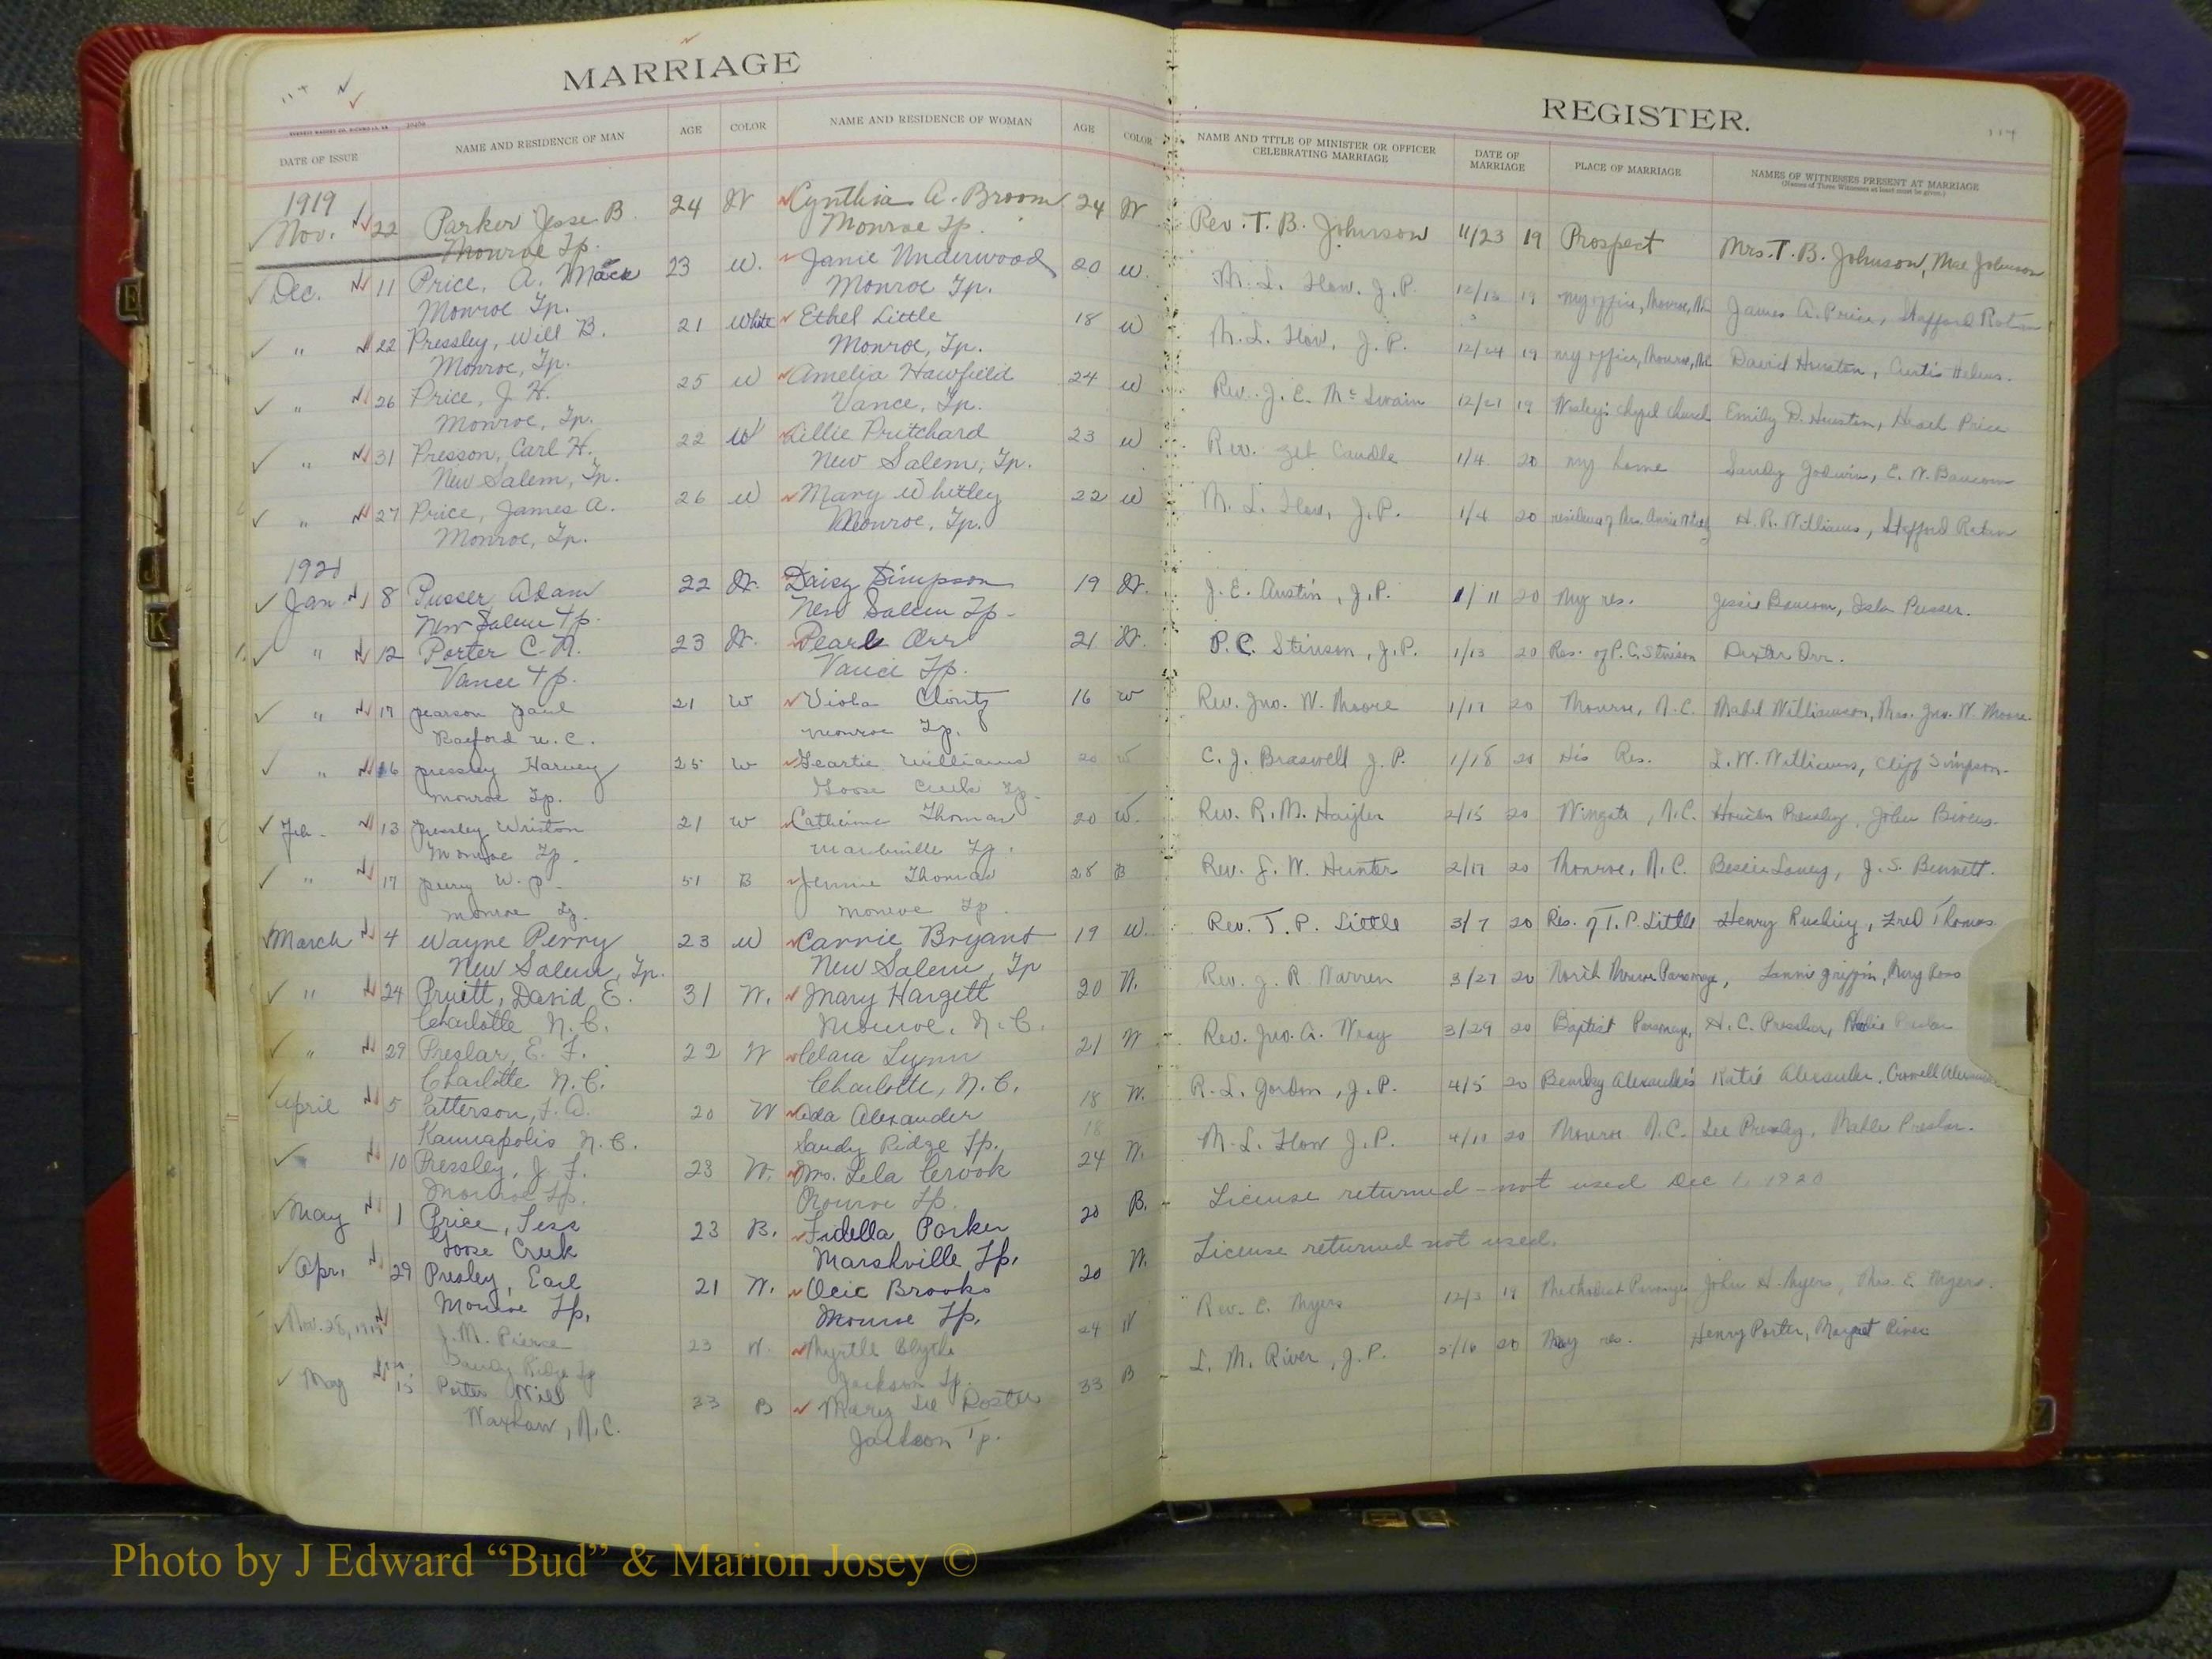 MARRIAGE
DATE OF ISSUE NAME AND RESIDENCE OF MAN AGE COLOR NAME AND RESIDENCE OF WOMAN AGE COLOR
1919
Nov. 22 Parker Jesse B. 24 W Cynthia A. Broom 24 W
Monroe Tp. Monroe Tp.
Dec. 11 Price, A. Mack 23 W. Janie Underwood 20 W.
Monroe Tp. Monroe Tp.
" 22 Pressley, Will B. 21 White Ethel Little 18 W
Monroe, Tp. Monroe, Tp.
" 26 Price, J. H. 25 W Amelia Hawfield 24 W
Monroe, Tp. Vance, Tp.
" 31 Presson, Carl H. 22 W Lillie Pritchard 23 W
New Salem, Tp. New Salem, Tp.
" 27 Price, James A. 26 W Mary Whitley 22 W
Monroe, Tp. Monroe, Tp.
1920
Jan. 8 Pusser Adam 22 W. Daisy Simpson 19 W.
New Salem Tp. New Salem Tp.
" 12 Porter C. M. 23 W. Pearl Orr 21 W.
Vance Tp. Vance Tp.
" 17 Pearson Paul 21 W Viola Clontz 16 W
Raeford N. C. Monroe Tp.
" 16 Pressley Harvey 25 W Williams 20 W
Monroe Tp. Goose Creek Tp.
Feb. 13 Pressley Wriston 21 W Catherine Thomas 20 W.
Monroe Tp. Marshville Tp.
" 17 Perry W. P. 51 B Jennie Thomas 28 B
Monroe Tp. Monroe Tp.
March 4 Wayne Perry 23 W Carrie Bryant 19 W.
New Salem, Tp. New Salem, Tp
" 24 Pruitt, David E. 31 W. Mary Hargett 20 W.
Charlotte N. C. Monroe, N. C.
" 29 Preslar, E. F. 22 W Clara Lynn 21 W
Charlotte N. C. Charlotte, N. C.
April 5 Patterson, 20 W Ada Alexander 18 W.
Kannapolis N. C. Sandy Ridge Tp. 18
10 Pressley, J. F. 23 W. Mrs. Lela Crook 24 W.
Monroe Tp. Monroe Tp.
May 1 Price, Jess 23 B. Fidella Parker 20 B.
Goose Creek Marshville Tp.
Apr. 29 Presley, Earl 21 W. Ocie Brooks 20 W.
Monroe Tp. Monroe Tp.
Nov. 28, 1919 J. M. Pierce 23 W. Myrtle Blythe 24 W
Sandy Ridge Tp Jackson Tp.
May 15 Porter Will 33 B Mary Lee 33 B
Waxhaw, N. C. Jackson Tp.
REGISTER.
NAME AND TITLE OF MINISTER OR OFFICER CELEBRATING MARRIAGE DATE OF MARRIAGE PLACE OF MARRIAGE NAMES OF WITNESSES PRESENT AT MARRIAGE
(Names of Three Witnesses at least must be given.)
Rev. T. B. Johnson 11/23 19 Prospect Mrs. T. B. Johnson, Mae Johnson
M. L. Flow. J. P. 19 my office, Monroe, N.C. James A. Price, Stafford
M. L. Flow, J. P. 12/24 19 my office, Monroe, N.C. David Huston, Curtis Helms.
Rev. J. E. McSwain 12/21 19 Wesley's Chapel Church Emily D. Huston, Price
Rev. Zeb Caudle 1/4 20 my home Sandy Godwin, E. W. Baucom
M. L. Flow, J. P. 1/4 20 residence of Mrs. Annie H. R. Williams, Stafford
J. E. Austin, J. P. 1/11 20 My res. Jessie Baucom, Pusser.
P. C. Stinson, J. P. 1/13 20 Res. of P. C. Stinson Dexter Orr.
Rev. Jno. W. Moore 1/17 20 Monroe, N. C. Mabel Williamson, Mrs. Jno. W. Moore.
C. J. Braswell J. P. 1/18 20 His Res. L. W. Williams, Cliff Simpson.
Rev. R. M. Haigler 2/15 20 Wingate, N. C. Pressley, John Bivens.
Rev. S. W. Hunter 2/17 20 Monroe, N. C. Bessie J. S. Bennett.
Rev. T. P. Little 3/7 20 Res. of T. P. Little Henry Rushing, Fred Thomas
Rev. J. R. Warren 3/27 20 North Monroe Parsonage, Griffin, Mary
Rev. Jno. A. Wray 3/29 20 Baptist Parsonage, H. C. Preslar,
R. L. Gordon, J. P. 4/5 20 Alexander's Katie Alexander,
M. L. Flow J. P. 20 Monroe N. C. Lee Presley, Preslar.
License returned - not used Dec 1, 1920
License returned not used.
Rev. E. Myers 12/3 19 Methodist Parsonage John H. Myers, Mrs. E. Myers.
J. P. 5/16 20 My res. Henry Porter, Margret
Photo by J Edward “Bud” & Marion Josey ©